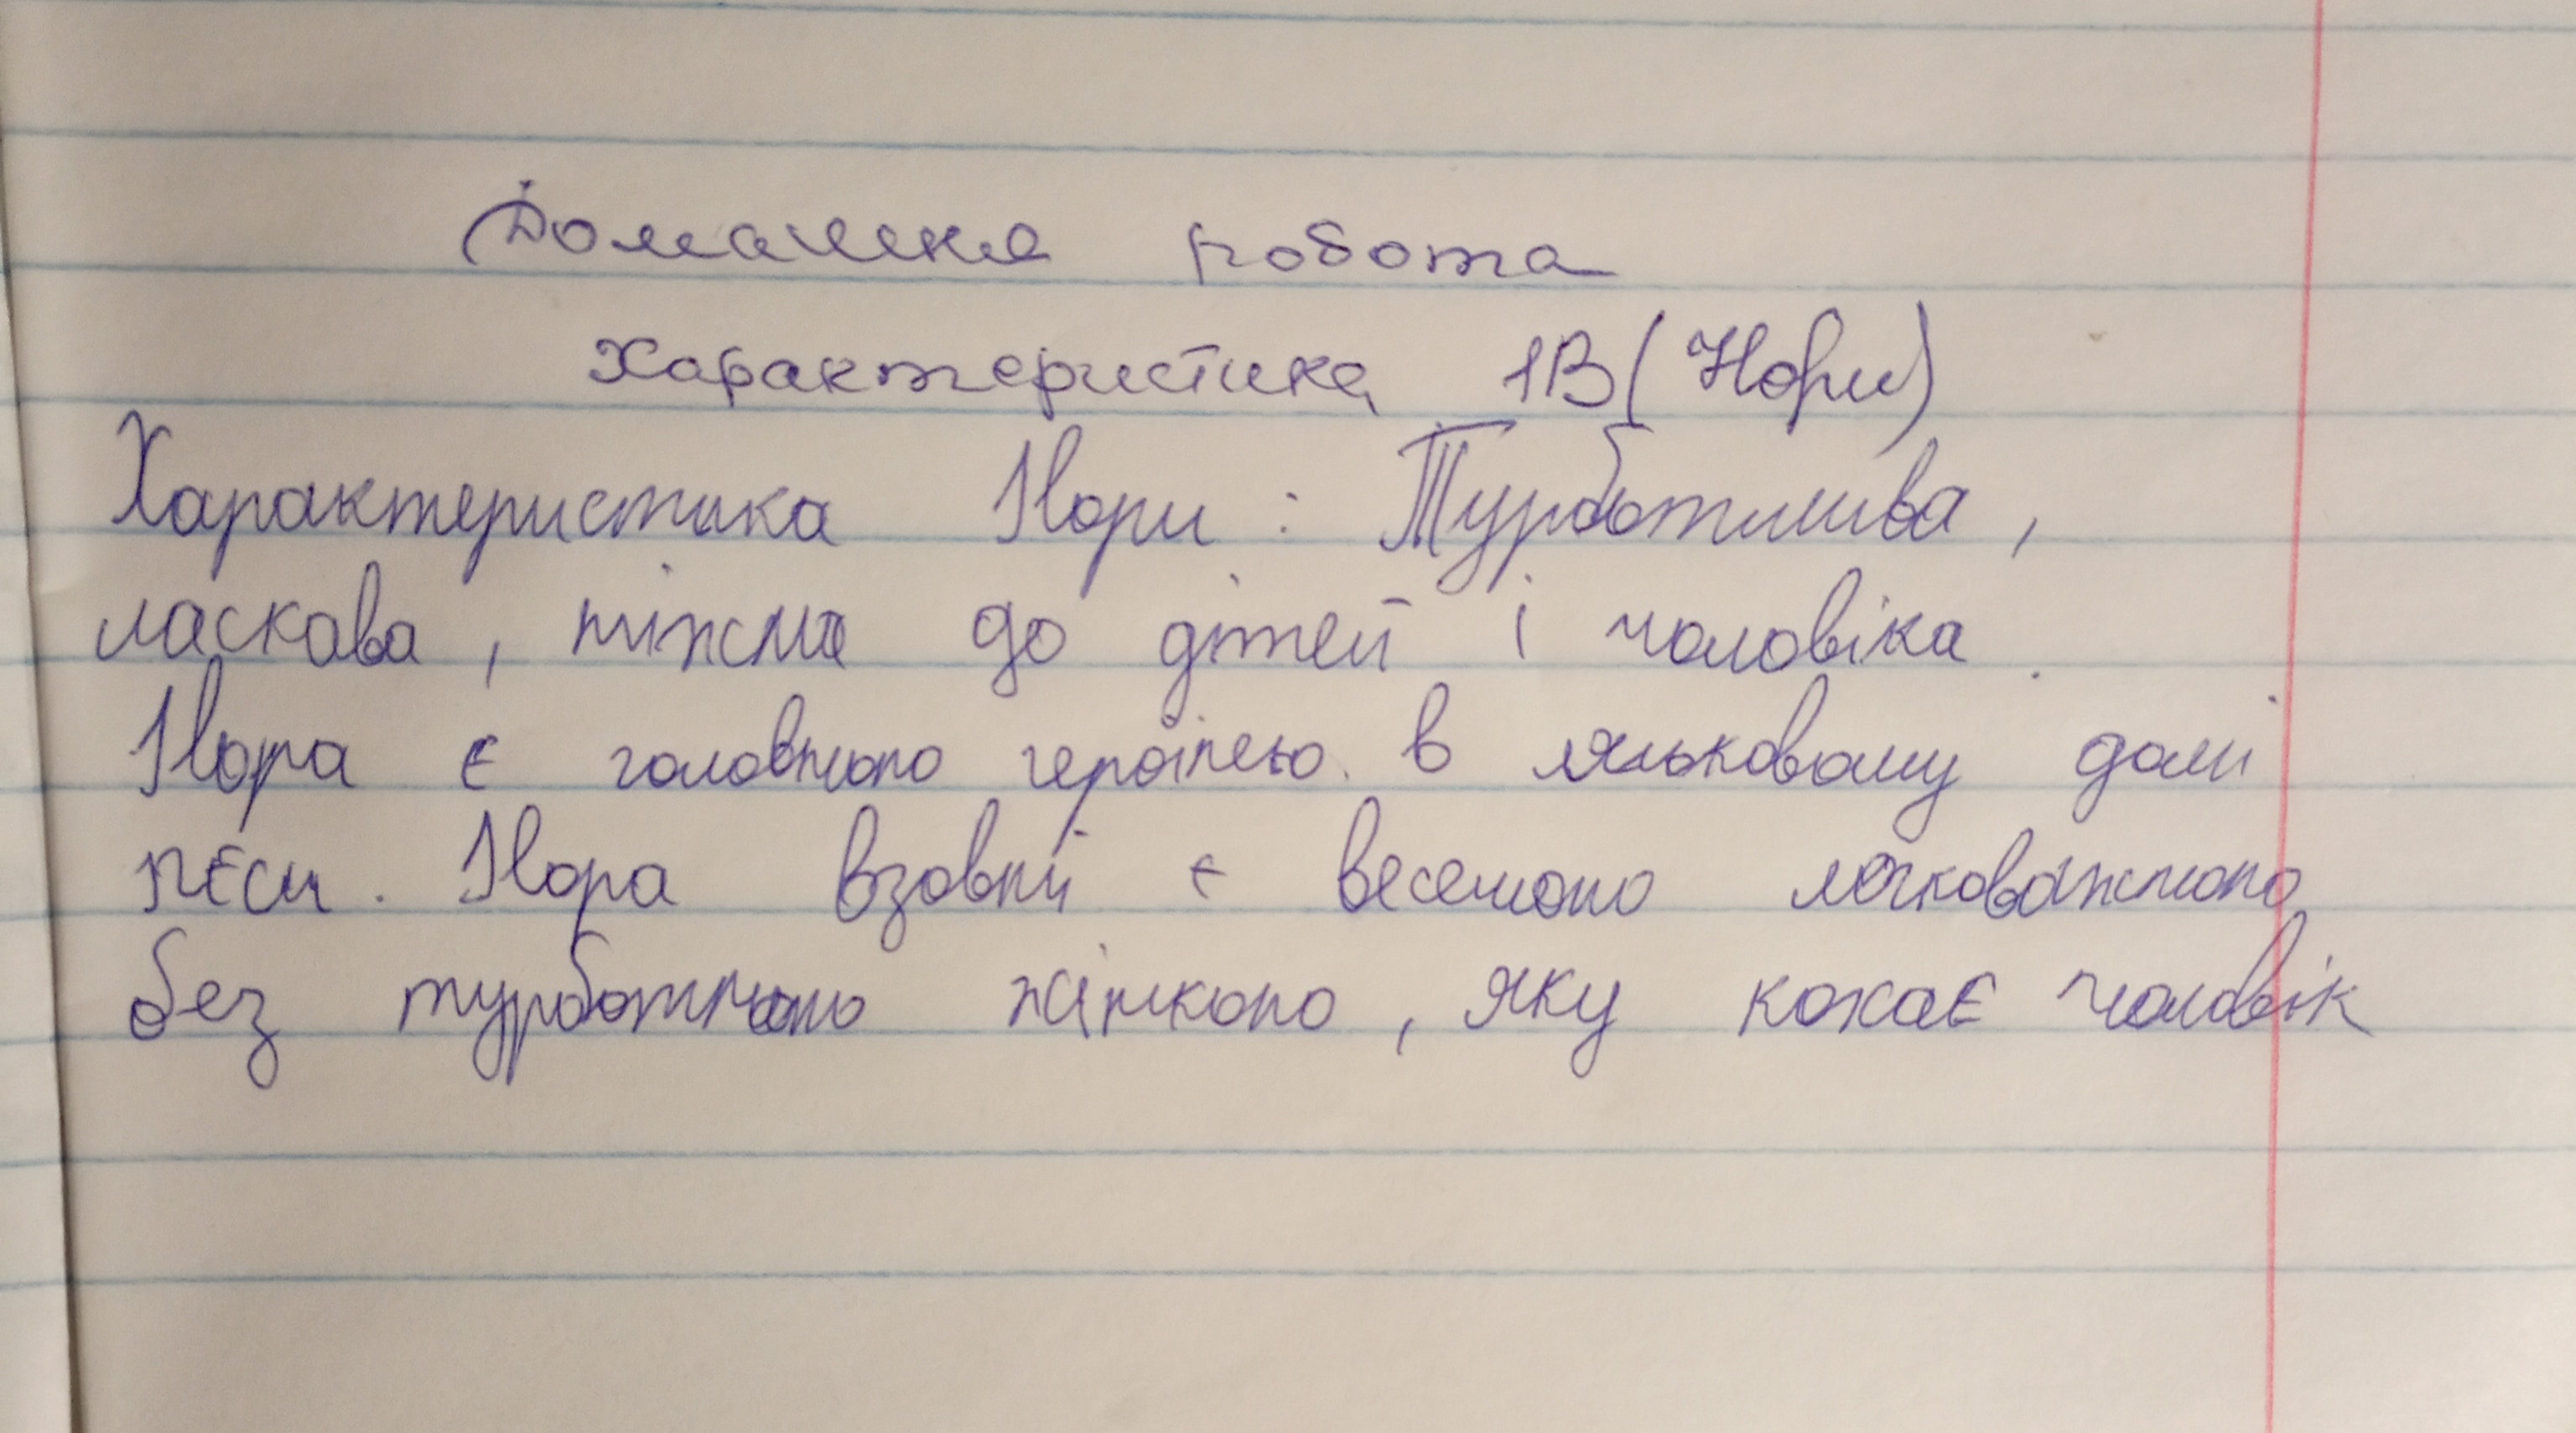 Домашка робота
Характеристика 1В (Нори)
Характеристика Нори : Турботлива ,
ласкава , ніжна до дітей і чоловіка .
Нора є головною героїнею в ляльковому домі
пєси . Нора взовні є веселою легковажною
без турботною жінкою , яку кохає чоловік